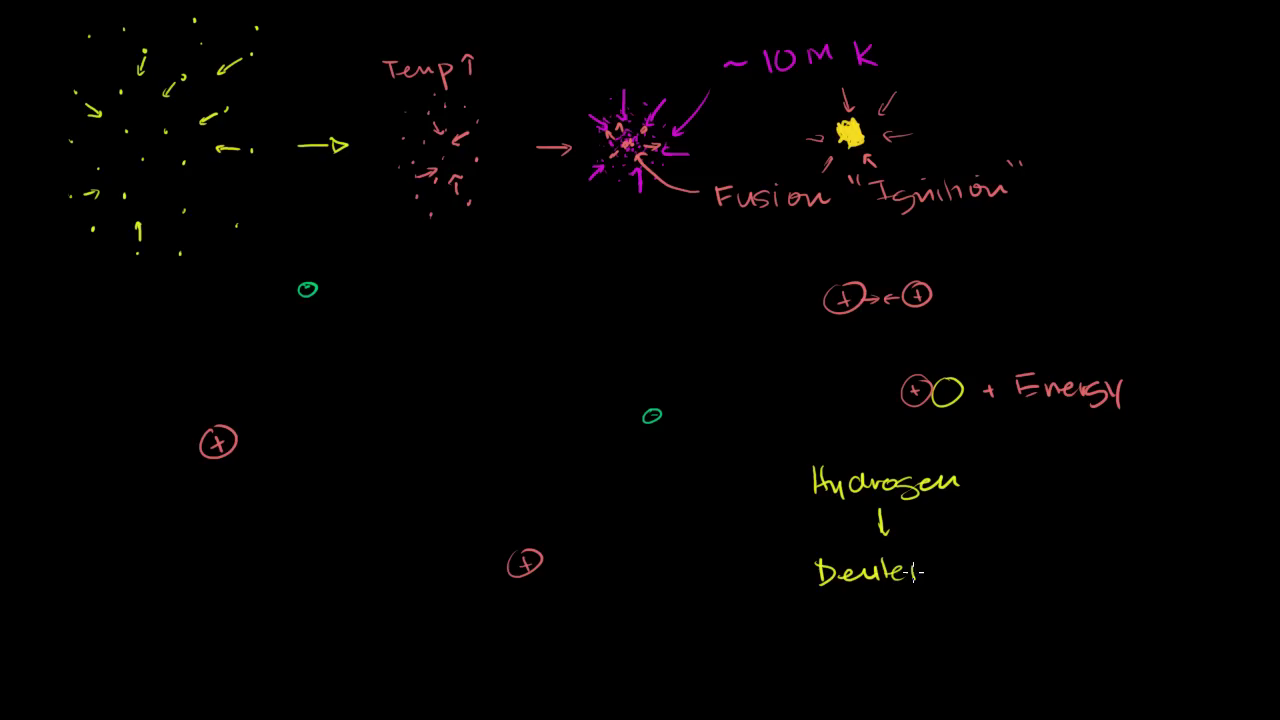 ~ 10 M K
Temp ↑
Fusion "Ignition"
+ → ← +
+ + Energy
-
-
+
+
Hydrogen
↓
Deuter